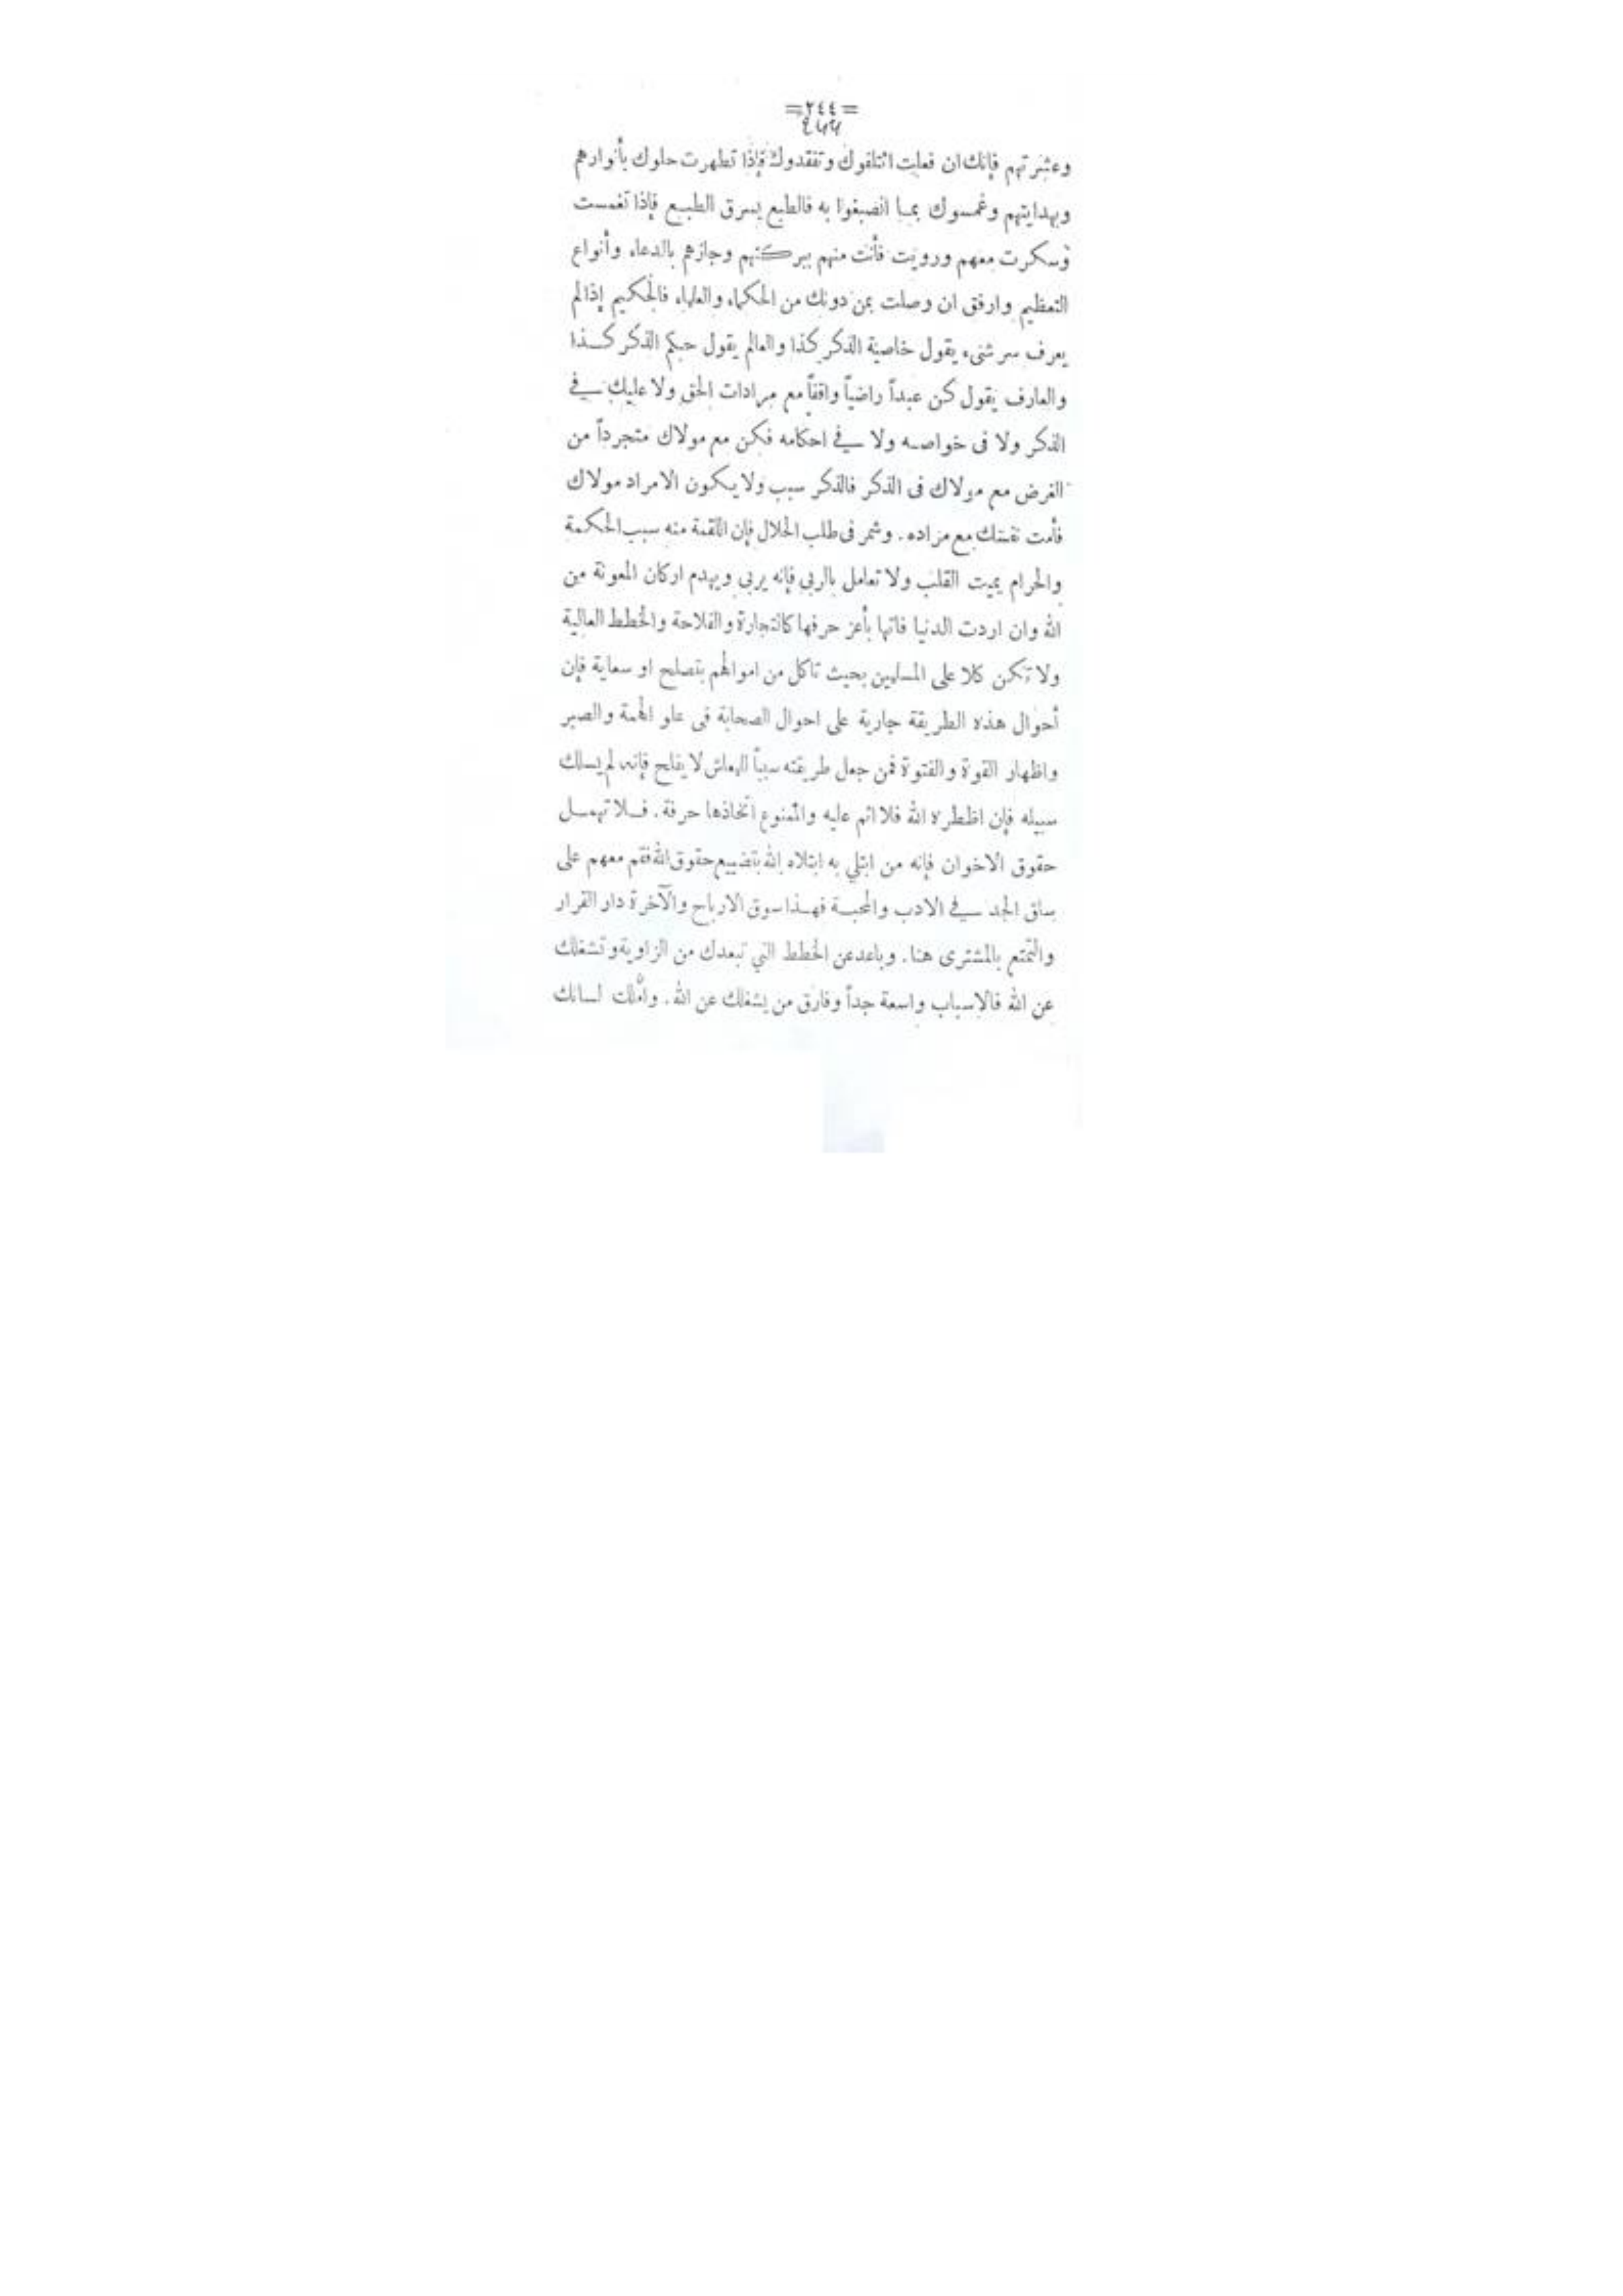 =٢٤٤=
وعشرتهم فإنك ان فعلت ائتلفوك وتفقدوك فإذا تطهرت حلوك بأنوارهم
وبهدايتهم وغمسوك بما انصبغوا به فالطبع يسرق الطبع فإذا تغمست
وسكرت معهم ورويت فأنت منهم ببركتهم وجازهم بالدعاء وأنواع
التعظيم وارفق ان وصلت بمن دونك من الحكماء والعلماء فالحكيم إذا لم
يعرف سر شىء يقول خاصية الذكر كذا والعالم يقول حكم الذكر كذا
والعارف يقول كن عبداً راضياً واقفاً مع مرادات الحق ولا عليك في
الذكر ولا فى خواصه ولا في احكامه فكن مع مولاك متجرداً من
الغرض مع مولاك فى الذكر فالذكر سبب ولا يكون الا مراد مولاك
فأمت نفسك مع مراده. وشمر فى طلب الحلال فإن اللقمة منه سبب الحكمة
والحرام يميت القلب ولا تعامل بالربى فإنه يربى ويهدم اركان المعونة من
الله وان اردت الدنيا فاتها بأعز حرفها كالتجارة والفلاحة والخطط العالية
ولا تكن كلا على المسلمين بحيث تاكل من اموالهم بتصلح او سعاية فإن
أحوال هذه الطريقة جارية على احوال الصحابة فى علو الهمة والصبر
واظهار القوة والفتوة فمن جعل طريقته سبباً للمعاش لا يفلح فإنه لم يسلك
سبيله فإن اظطره الله فلا اثم عليه والممنوع اتخاذها حرفة. فلا تهمل
حقوق الاخوان فإنه من ابتلي به ابتلاه الله بتضييع حقوق الله فقم معهم على
ساق الجد في الادب والمحبة فهذا سوق الارباح والآخرة دار القرار
والتمتع بالمشترى هنا. وباعد عن الخطط التي تبعدك من الزاوية وتشغلك
عن الله فالاسباب واسعة جداً وفارق من يشغلك عن الله. واملك لسانك